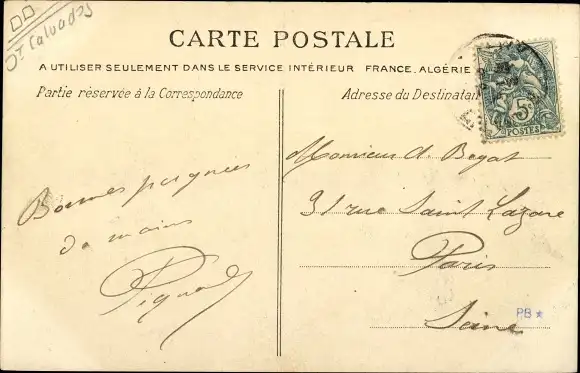 Dt Calvados
CARTE POSTALE
A UTILISER SEULEMENT DANS LE SERVICE INTÉRIEUR FRANCE. ALGÉRIE
Partie réservée à la Correspondance
Adresse du Destinatai
5c
POSTES
Bonnes poignées
de mains
Pignol
Monsieur A. Begat
31 rue Saint Lazare
Paris
Seine
PB ★